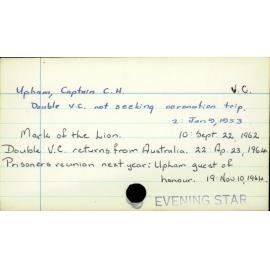 Upham, Captain C.H. V.C.
Double V.C. not seeking coronation trip.
2: Jan 9, 1953
Mark of the Lion. 10: Sept. 22, 1962
Double V.C. returns from Australia. 22: Ap. 23, 1964.
Prisoners reunion next year: Upham guest of
honour. 19: Nov 10, 1964.
EVENING STAR